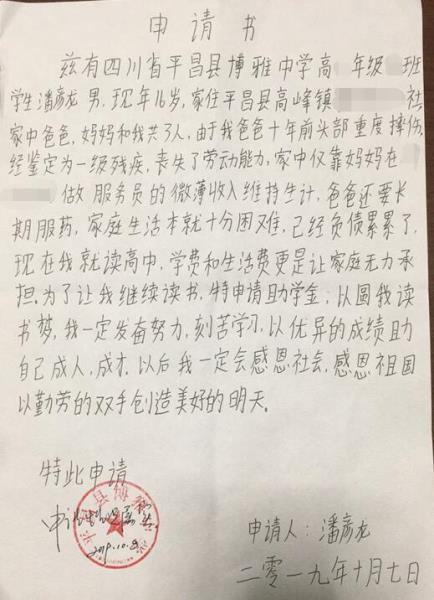 申请书
兹有四川省平昌县博雅中学高 年级 班
学生潘彦龙 男，现年16岁，家住平昌县高峰镇 社，
家中爸爸，妈妈和我共3人，由于我爸爸十年前头部重度摔伤，
经鉴定为一级残疾，丧失了劳动能力，家中仅靠妈妈在
做服务员的微薄收入维持生计，爸爸还要长
期服药，家庭生活本就十分困难，己经负债累累了，
现在我就读高中，学费和生活费更是让家庭无力承
担。为了让我继续读书，特申请助学金；以圆我读
书梦，我一定发奋努力，刻苦学习，以优异的成绩助
自己成人，成才，以后我一定会感恩社会，感恩祖国
以勤劳的双手创造美好的明天。
特此申请
2019.10.8
申请人：潘彦龙
二零一九年十月七日